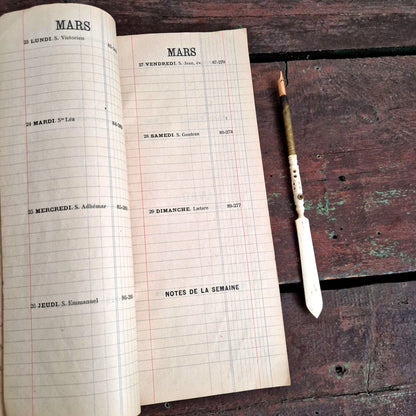 MARS
23 LUNDI. S. Victorien
24 MARDI. Ste Léa
25 MERCREDI. S. Adhémar
26 JEUDI. S. Emmanuel
MARS
27 VENDREDI. S. Jean, év. 87-279
28 SAMEDI. S. Gontran 88-278
29 DIMANCHE. Lætare 89-277
NOTES DE LA SEMAINE